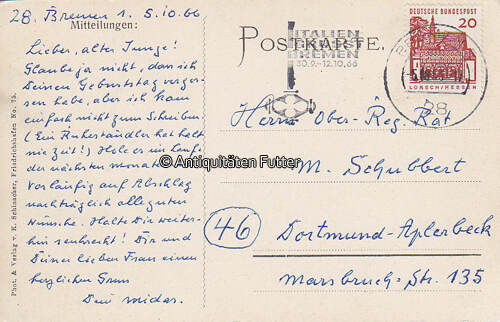 28. Bremen 1. 5.10.66
Mitteilungen:
Lieber, alter Junge!
Glaube ja nicht, dass ich
Deinen Geburtstag verges-
sen habe, aber ich kam
einfach nicht zum Schreiben
(Ein Ruheständler hat halt
nie Zeit!) Hole es im Laufe
der nächsten Monate
Vorläufig auf Abschlag
nachträglich alle guten
Wünsche. Halte Dir weiter-
hin senkrecht! Dir und
Deiner lieben Frau einen
herzlichen Gruss
Dein
Phot. & Verlag v. K. Schlusche, Friedrichshafen No. 75.
POSTKARTE.
ITALIEN
BREMEN
30.9.-12.10.66
DEUTSCHE BUNDESPOST
20
LORSCH/HESSEN
28
Herrn Ober-Reg. Rat
M. Schubbert
46 Dortmund-Aplerbeck
Marsbruch-Str. 135
© Antiquitäten Futter